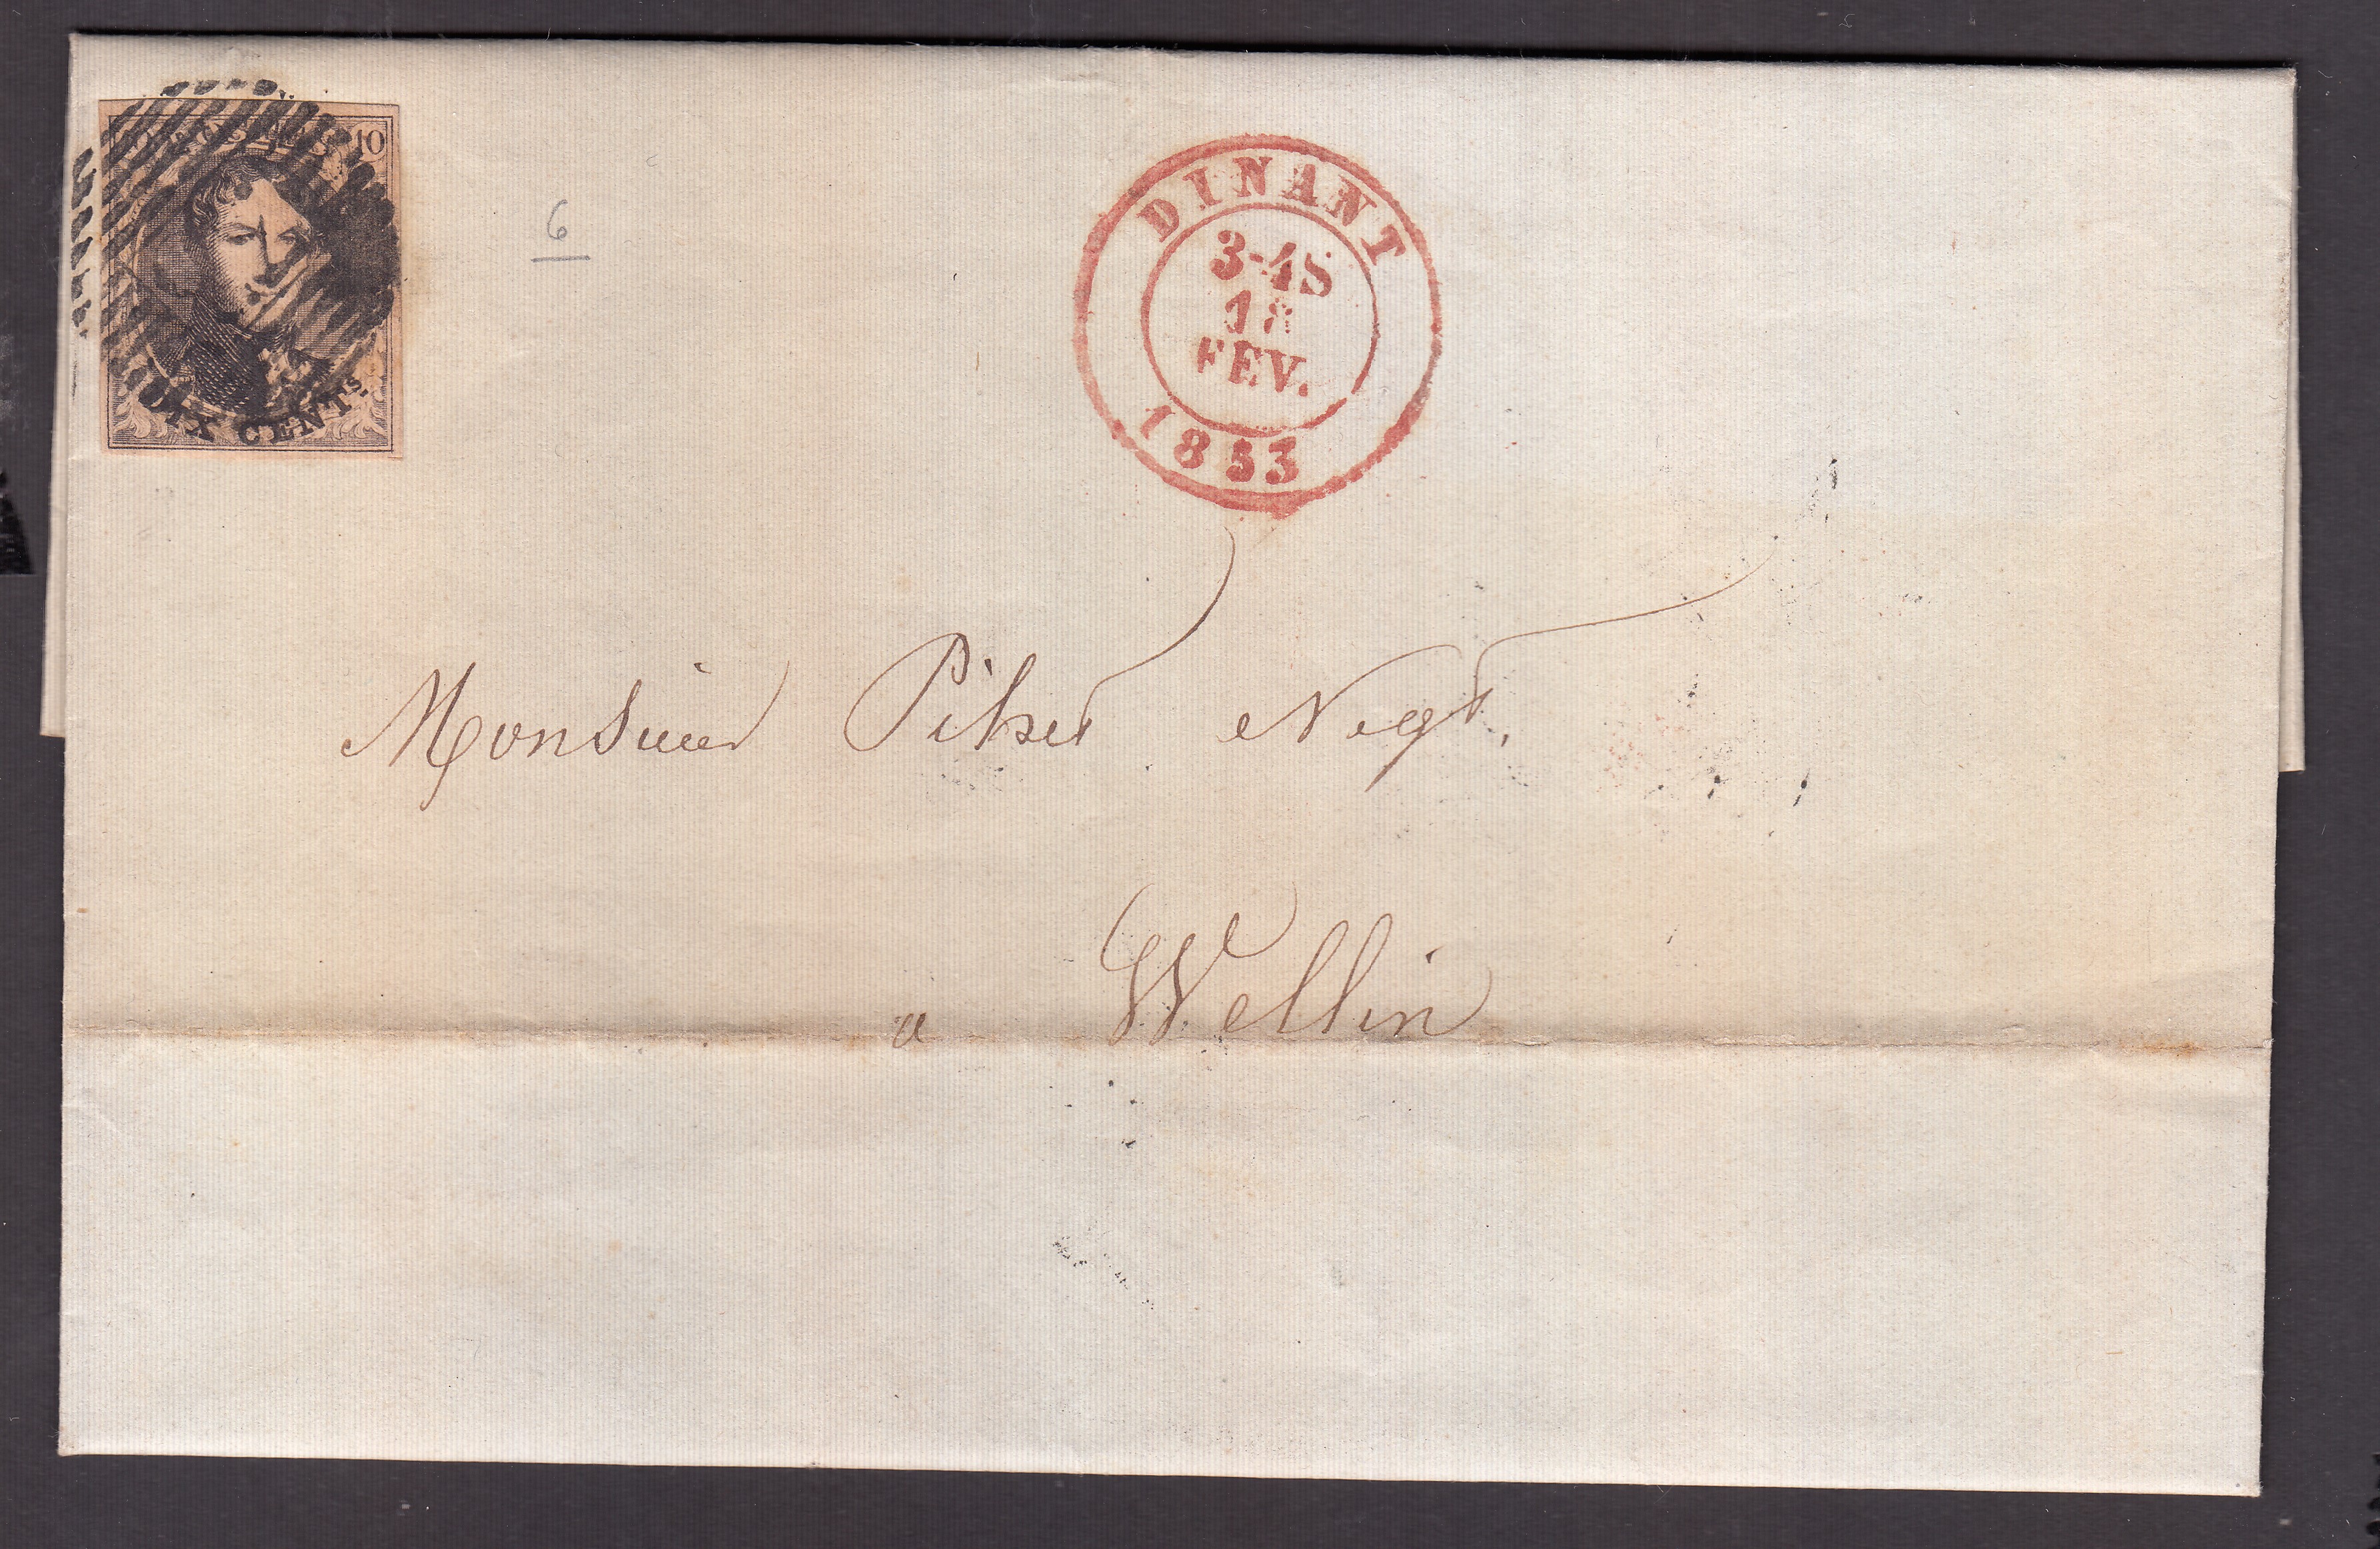 10
DIX CENTS.
6
DINANT
3-4S
18
FEV.
1853
Monsieur Pihet Negt.
a Wellin